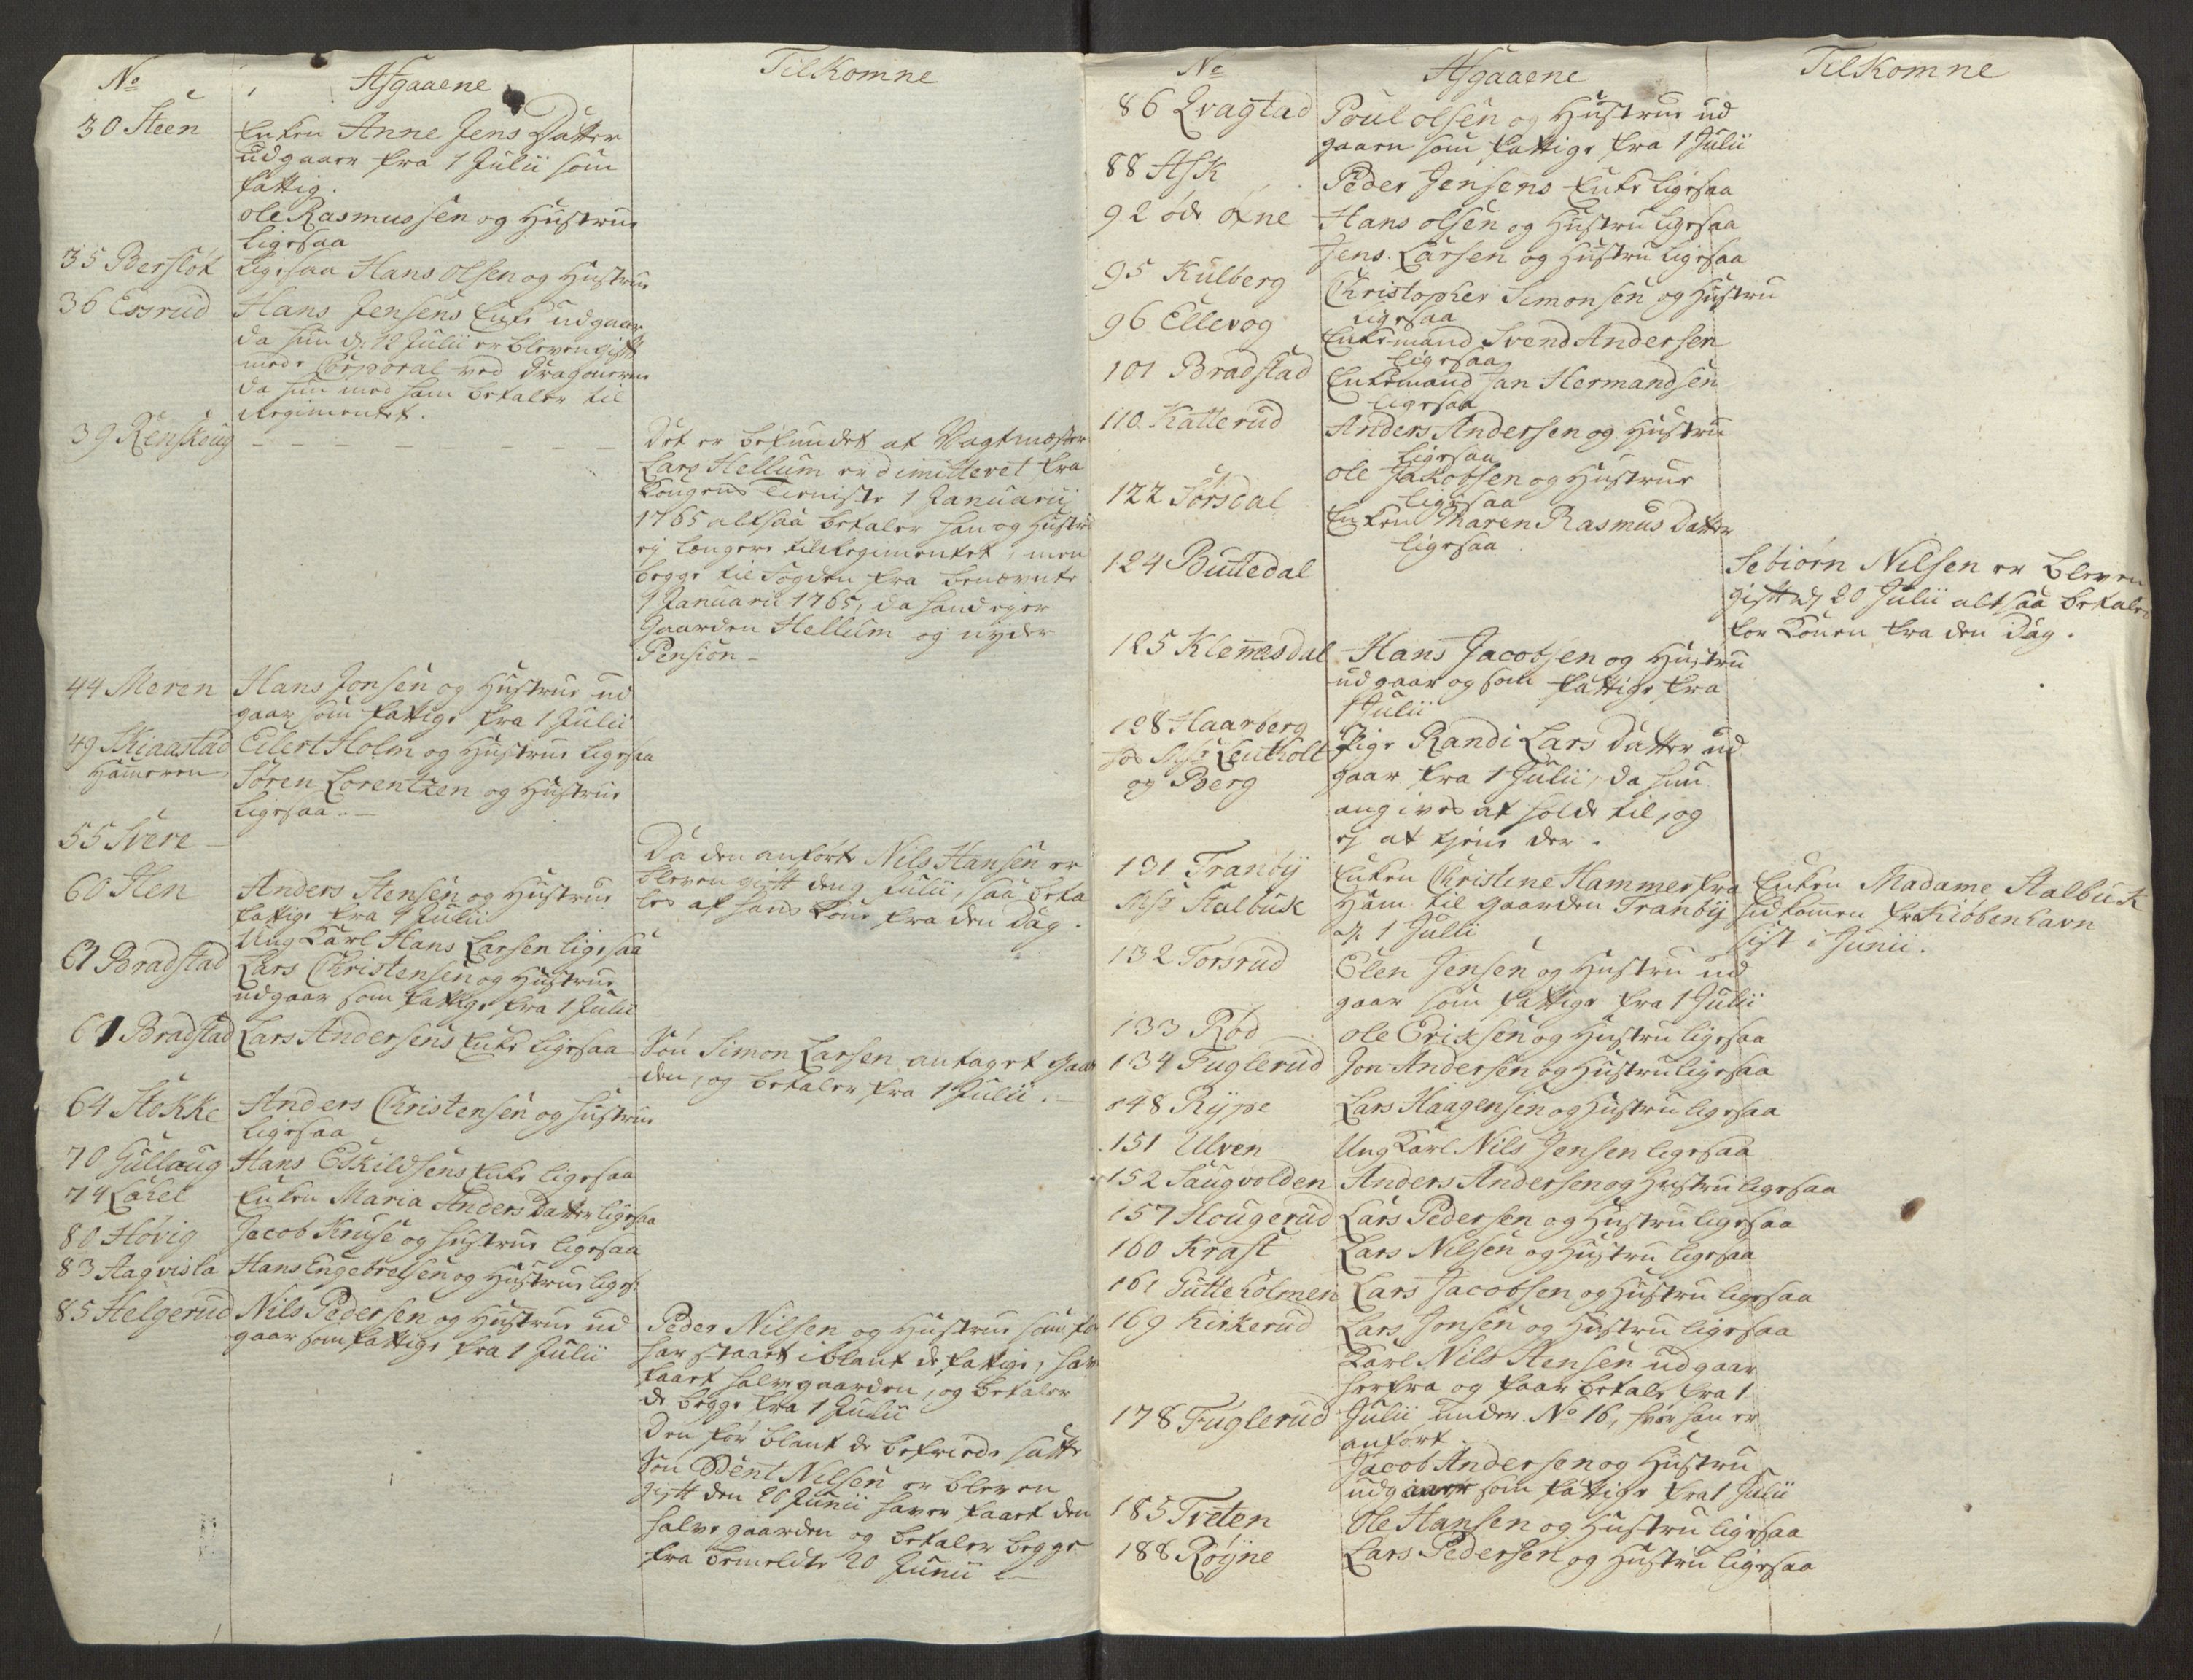 No Afgaaene TilKomne
30 Steen Enken Anne Jens Datter
udgaaer fra 1 Julii som
fattig.
ole Rasmussen og Hustrue
ligesaa
35 Berslok ligesaa Hans olsen og Hustrue
36 Essrud Hans Jensens Enke udgaar
da hun d: 12 Julii er bleven gift
med Corporal ved Dragonerne
da hun med ham betaler til
Regimentet.
39 Renskoug - - - - - - -
Det er befundet at Vagtmæster
Lars Hellum er dimitteret fra
Kongens Tieniste 1 Januarii
1765 altsaa betaler han og Hustru
ej længere til Regimentet, men
begge til Fogden fra benævnte
1 Januarii 1765, da hand ejer
Gaarden Hellum og nyder
Pension -
44 Meren Hans Jonsen og Hustrue ud
gaar som fattige fra 1 Julii
49 Skiaastad Eilert Holm og Hustrue ligesaa
Hammeren Søren Lorentzen og Hustrue
ligesaa. -
55 Svere -
Da den anførte Nils Hansen er
bleven gift den 9 Julii, saa beta
les af hans Kone fra den Dag.
60 Sten Anders Stensen og Hustrue
fattige fra 1 Julii
Ung Karl Hans Larsen ligesaa
61 Bradstad Lars Christensen og Hustrue
udgaar som fattige fra 1 Julii
61 Bradstad Lars Andersens Enke ligesaa
Søn Simon Larsen antaget Gaar
den, og betaler fra 1 Julii. -
64 Stokke Anders Christensen og Hustrue
ligesaa
70 Gullaug Hans Eskildsens Enke ligesaa
74 Lahel Enken Maria Anders Datter ligesaa
80 Høvig Jacob Kruse og Hustrue ligesaa
83 Aagvisla Hans Engebretsen og Hustrue liges:
85 Helgerud Nils Pedersen og Hustrue ud
gaar som fattige fra 1 Julii
Peder Nilsen og Hustrue som før
har staaet iblant de fattige, har
faaet halve gaarden, og betaler
de begge fra 1 Julii
Den før blant de befriede satte
Søn Bent Nilsen er bleven
gift den 20 Junii haver faaet den
halve gaarden og betaler begge
fra bemeldte 20 Junii -
No Afgaaene TilKomne
86 Qvagstad Poul olsen og Hustrue ud
gaaen som fattige fra 1 Julii
88 Ask Peder Jensens Enke ligesaa
92 øde oxne Hans olsen og Hustru ligesaa
Jens Larsen og Hustru ligesaa
95 Kulberg Christopher Simonsen og Hustru
ligesaa
96 Ellevog Enkemand Svend Andersen
ligesaa
101 Bradstad Enkemand Jan Hermandsen
ligesaa
110 Katterud Anders Andersen og Hustru
ligesaa
ole Jakobsen og Hustrue
122 Sørsdal ligesaa
Enken Maren Rasmus Datter
ligesaa
124 Buttedal
Sebiørn Nilsen er bleven
gift d 20 Julii altsaa betaler
for Konen fra den Dag.
125 Klemesdal Hans Jacobsen og Hustru
udgaar og som fattige fra
1 Julii
128 Haarberg
hos Msr Leutholt Pige Randi Lars Datter ud
og Berg gaar fra 1 Julii, da hun
angives at holde til, og
ej at tjene der.
131 Tranby Enken Christine Hammer fra
Msr Stalbuk Ham til gaarden Tranby
d 1 Julli
Enken Madame Stalbuk
udkommen fra Kiøbenhavn
sist i Junii.
132 Torsrud Elen Jensen og Hustru ud
gaar som fattige fra 1 Julii
133 Rød ole Eriksen og Hustru ligesaa
134 Fuglerud Jon Andersen og Hustru ligesaa
148 Rype Lars Haagensen og Hustru ligesaa
151 Ulven Ung Karl Nils Jensen ligesaa
152 Saugvolden Anders Andersen og Hustru ligesaa
157 Hougerud Lars Pedersen og Hustru ligesaa
160 Kraft Lars Nilsen og Hustru ligesaa
161 Gutteholmen Lars Jacobsen og Hustru ligesaa
169 Kirkerud Lars Jonsen og Hustru ligesaa
Karl Nils Stensen udgaar
herfra og faar betale fra 1
178 Fuglerud Julii under No 16, hvor han er
anført.
Jacob Andersen og Hustru
udgaaer som fattige fra 1 Julii
185 Tveten Ole Hansen og Hustru ligesaa
188 Røyne Lars Pedersen og Hustru ligesaa